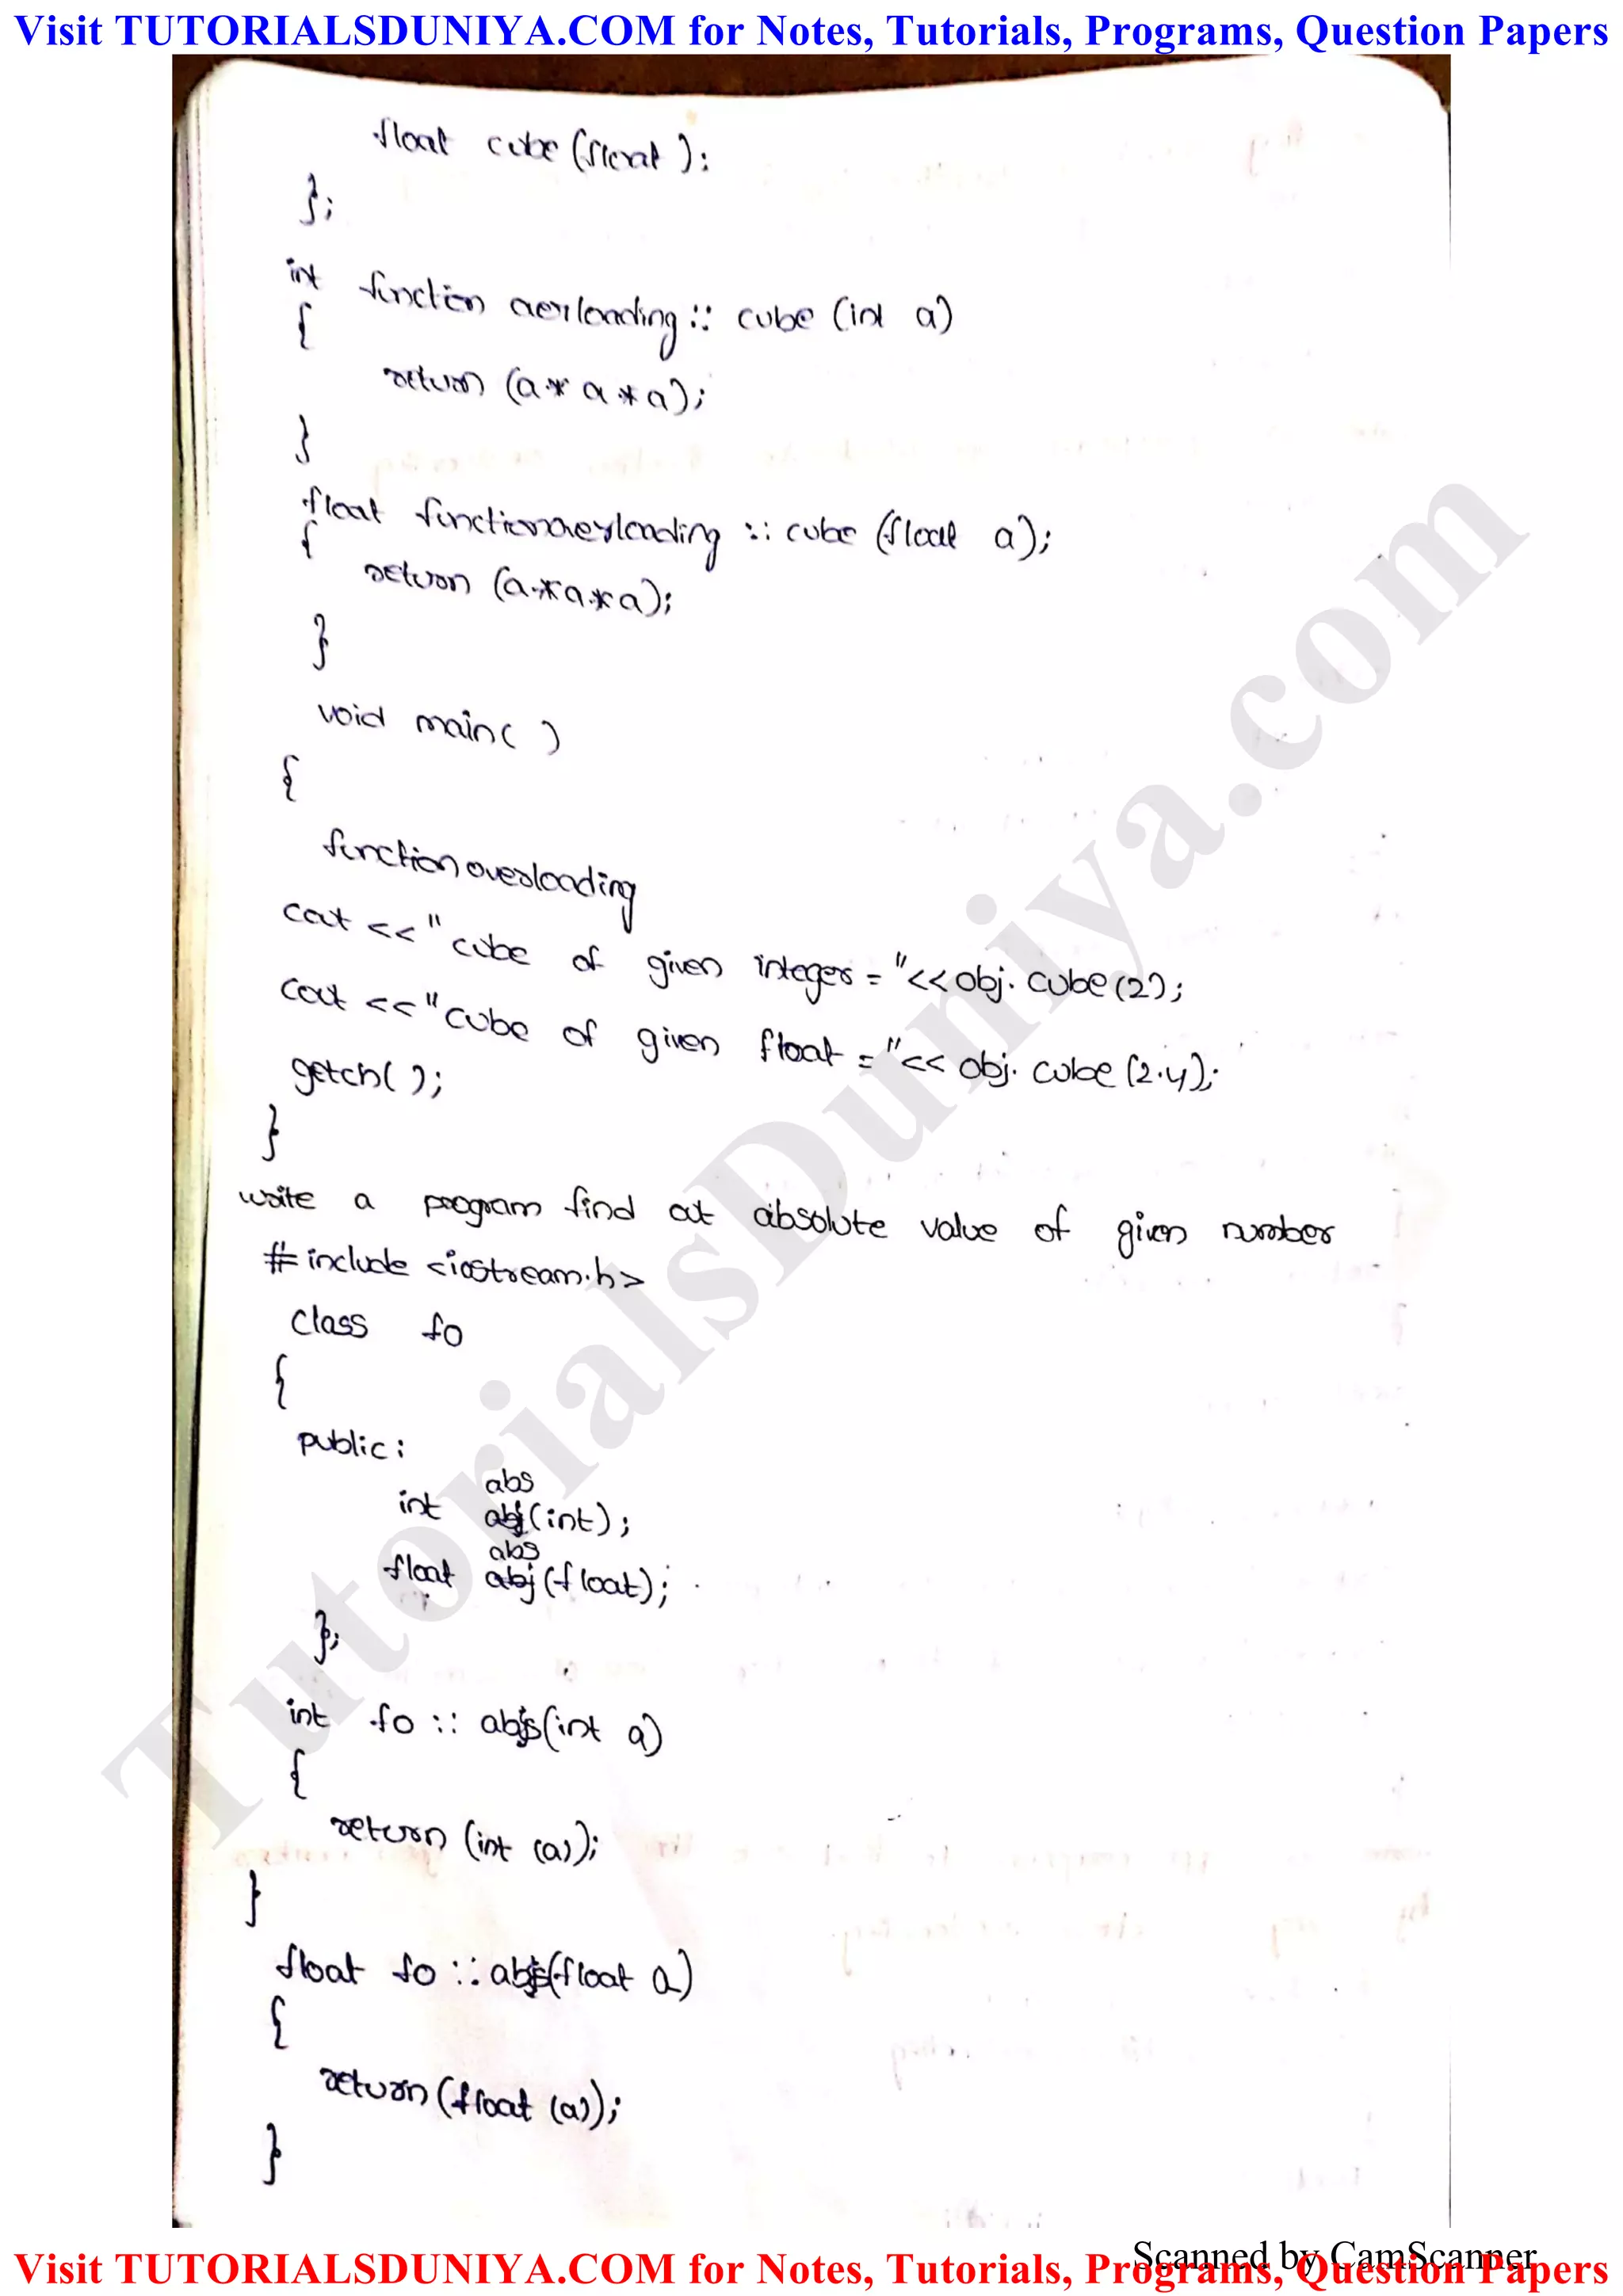 Visit TUTORIALSDUNIYA.COM for Notes, Tutorials, Programs, Question Papers
float cube (float );
};
int function overloading :: cube (int a)
{
return (a * a * a);
}
float functionoverloading :: cube (float a);
{
return (a*a*a);
}
void main( )
{
function overloading
cout << "cube of given integer = "<< obj. cube (2);
cout << "cube of given float = "<< obj. cube (2.4);
getch( );
}
write a program find out absolute value of given number
# include <iostream.h>
Class fo
{
public:
abs
int abj(int);
abs
float abj(float);
};
int fo :: abs(int a)
{
return (int (a));
}
float fo :: abs(float a)
{
return (float (a));
}
TutorialsDuniya.com
Scanned by CamScanner
Visit TUTORIALSDUNIYA.COM for Notes, Tutorials, Programs, Question Papers